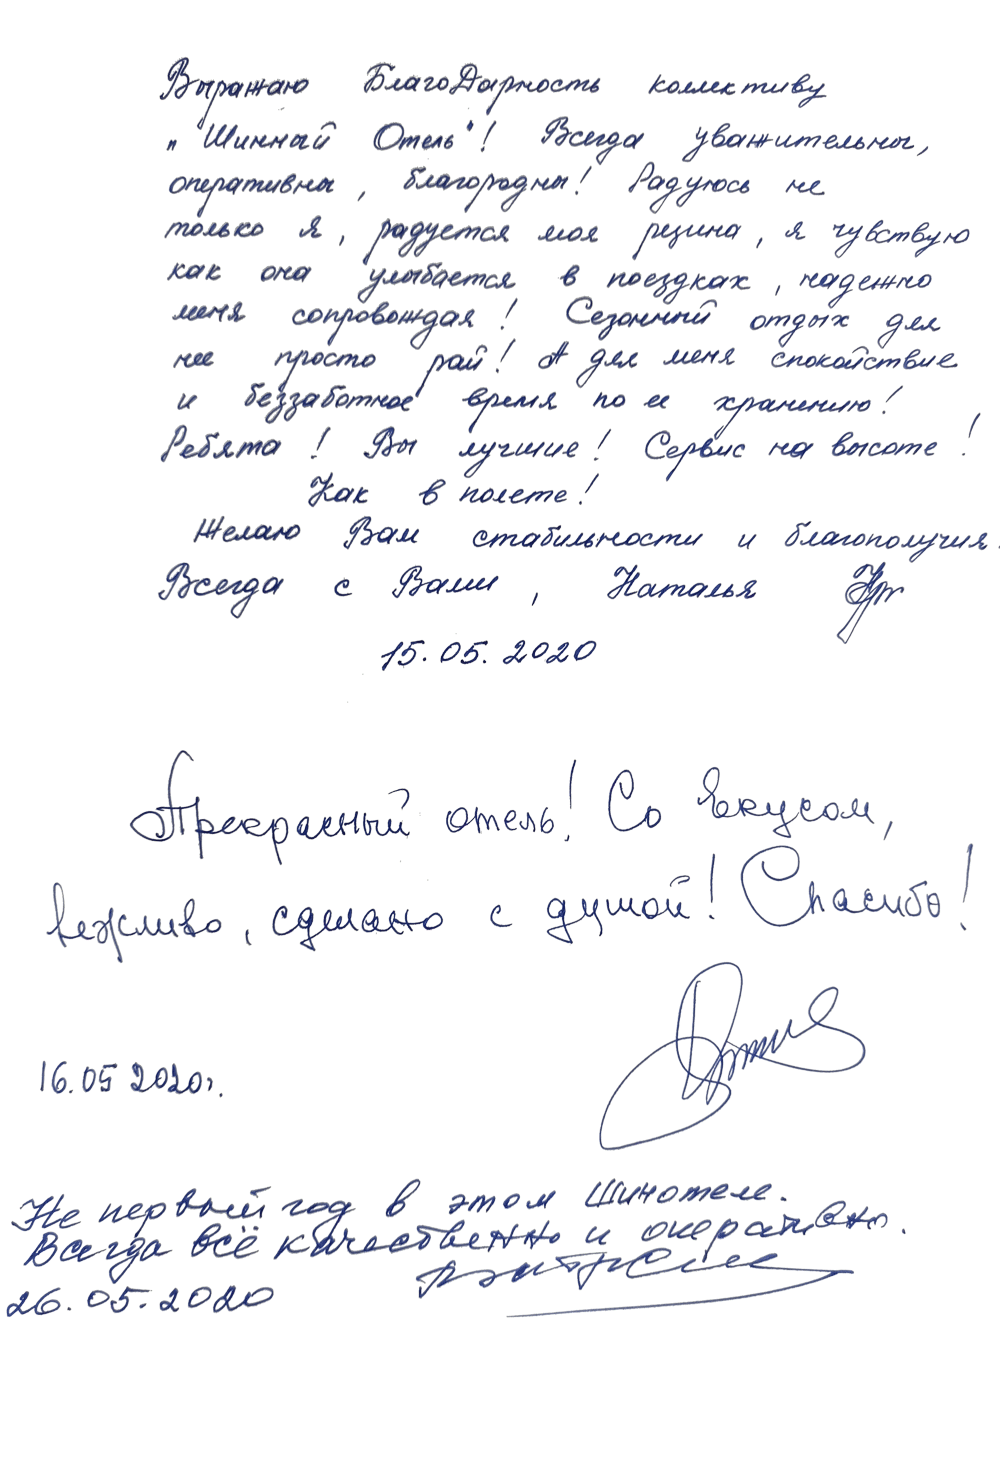 Выражаю БлагоДарность коллективу
"Шинный Отель"! Всегда уважительны,
оперативны, благородны! Радуюсь не
только я, радуется моя резина, я чувствую
как она улыбается в поездках, надежно
меня сопровождая! Сезонный отдых для
нее просто рай! А для меня спокойствие
и беззаботное время по ее хранению!
Ребята! Вы лучшие! Сервис на высоте!
Как в полете!
Желаю Вам стабильности и благополучия.
Всегда с Вами, Наталья
15.05.2020
Прекрасный отель! Со вкусом,
вежливо, сделано с душой! Спасибо!
16.05 2020г.
Не первый год в этом Шинотеле.
Всегда всё качественно и оперативно.
26.05.2020